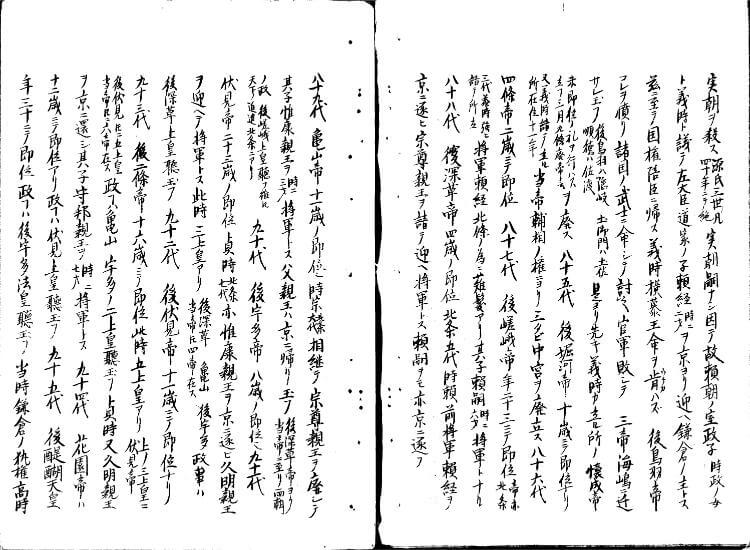 実朝ヲ殺ス 源氏三世凡四十年ニテ絶 実朝嗣ナシ因テ故頼朝ノ室政子 時政ノ女
ト義時ト議テ左大臣道家ノ子頼経 時ニ二才 ヲ京ヨリ迎ヘ鎌倉ノ主トス
茲ニ至テ国権陪臣ニ帰ス義時横暴王命ヲ肯ハス 後鳥羽帝
コレヲ憤リ諸国ノ武士ニ命シテ討シム官軍敗レテ 三帝海嶋ニ遷
サレ玉フ 後鳥羽ハ隠岐 土御門ハ土佐 順徳ハ佐渡 是ヨリ先キ義時カ立ル所ノ懐成帝
未即位ノ礼ヲ行ハス ヲ廃ス 八十五代 後堀河帝 十歳ニテ即位アリ
又義時詣テ立ル 所在位十一年 当帝輔相ノ権ニヨリ三タヒ中宮ヲ廃立ス 八十六代
四條帝 二歳ニテ即位 八十七代 後嵯峨帝 年二十三ニテ即位 帝亦北条
三代義時 将軍頼経北條ノ為ニ薙髪アリ其子頼嗣 時ニ六才 将軍トナル
八十八代 後深草帝 四歳ノ即位 北条五代時頼前将軍頼経ヲ
京ニ逐ヒ宗尊親王ヲ請テ迎ヘ将軍トス頼嗣ヲモ亦京ニ逐フ
八十九代 亀山帝 十一歳ノ即位 時宗 相継テ宗尊親王ヲ廃シテ
其子惟康親王ヲ 時ニ三才 将軍トス父親王ハ京ニ帰リ玉フ 後深草帝ヨリ当帝ニ至リ両朝
ノ政 後嵯峨上皇聴ヲ 天下ノ道 北条ニヨリ 九十代 後宇多帝 八歳ノ即位 九十一代
伏見帝 二十二歳ノ即位 貞時 北条七代 亦惟康親王ヲ京ニ逐ヒ久明親王
ヲ迎ヘテ将軍トス此時三上皇アリ 後深草 亀山 後宇多 当帝ニ四帝在ス 政事ハ
後深草上皇聴玉フ 九十二代 後伏見帝 十一歳ニテ即位ナリ
九十三代 後二條帝 十六歳ニテ即位此時五上皇アリ 上ノ三上皇ニ伏見帝
後伏見ヒニ五上皇 当帝ヒニ六帝在ス 政ハ亀山 宇多ノ二上皇聴玉フ貞時又久明親王
ヲ京ニ還シ其子守邦親王ヲ 時ニ七才 将軍トス 九十四代 花園帝ハ
十二歳ニテ即位アリ政ハ伏見上皇聴玉フ 九十五代 後醍醐天皇
年三十三ニテ即位政ハ後宇多法皇聴玉フ 当時鎌倉ノ執権高時